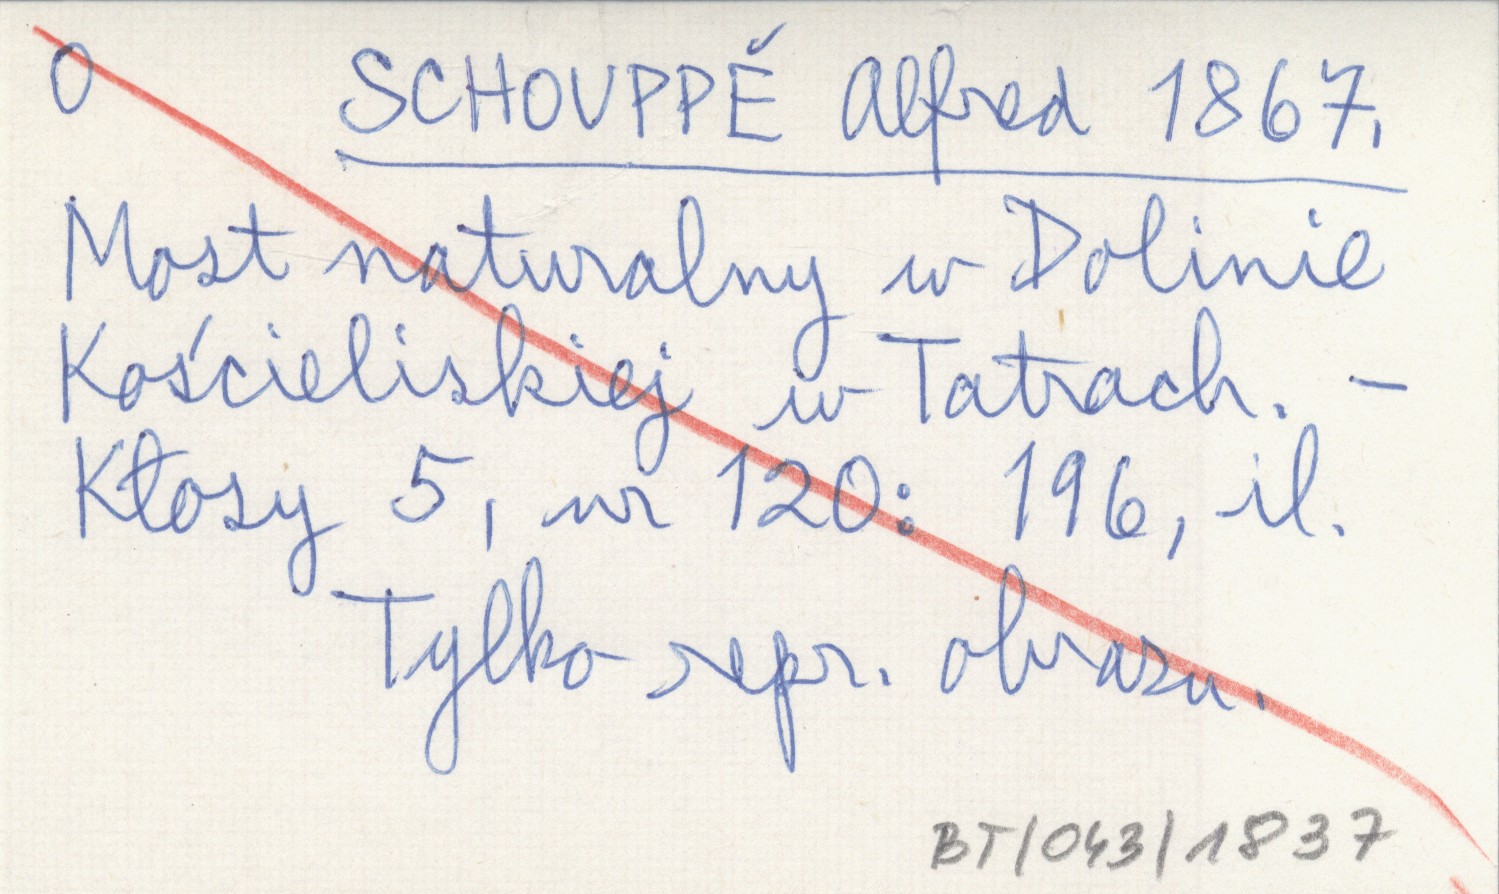 O SCHOUPPĚ Alfred 1867.
Most naturalny w Dolinie
Kościeliskiej w Tatrach. –
Kłosy 5, nr 120: 196, il.
Tylko repr. obrazu.
BT/043/1837